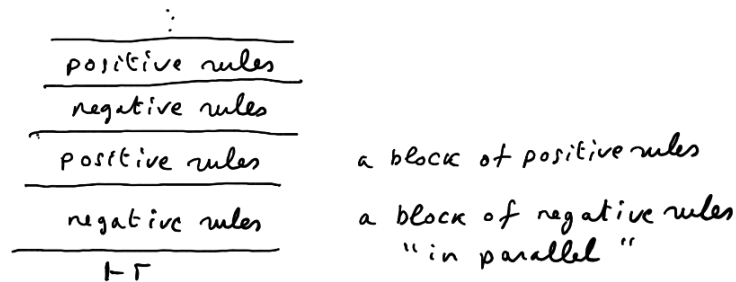 ⋮
positive rules
negative rules
positive rules a block of positive rules
negative rules a block of negative rules
"in parallel"
⊢ Γ